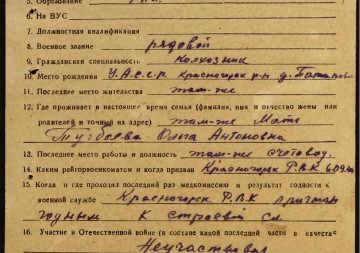 5. Образование
6. На ВУС
7. Должностная квалификация
8. Военное звание рядовой
9. Гражданская специальность Колхозник
10. Место рождения У.А.С.С.Р. Красногорск р-н д.
11. Последнее место жительства там-же
12. Где проживает в настоящее время семья (фамилия, имя и отчество жены или
родителей и точный их адрес) там-же Мать
Ольга Антоновна
13. Последнее место работы и должность там-же счетовод.
14. Каким райгорвоенкоматом и когда призван Красногорск Р.В.К
15. Когда и где проходил последний раз медкомиссию и результат годности к
военной службе Красногорск Р.В.К признан
годным к строевой сл.
16. Участие в Отечественной войне (в составе какой последней части и в качестве
Неучаствовал